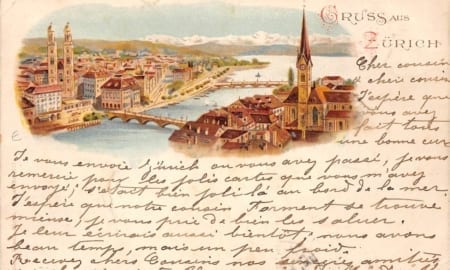 Gruss aus
Zürich
Cher cousin
J'espère que
vous avez
fait tous
une bonne
Je vous envoie Zurich où vous avez passé, je vous
remercie pour les jolies cartes que vous m'avez
envoyé, s'étoit bien joli là au bord de la mer.
J'espère que notre cousin se trouve
mieux, je vous prie de bien les saluer.
Je leur écrirais aussi bientôt, nous avons
beau temps, mais un peu froid.
Recevez chers Cousins nos amitiés